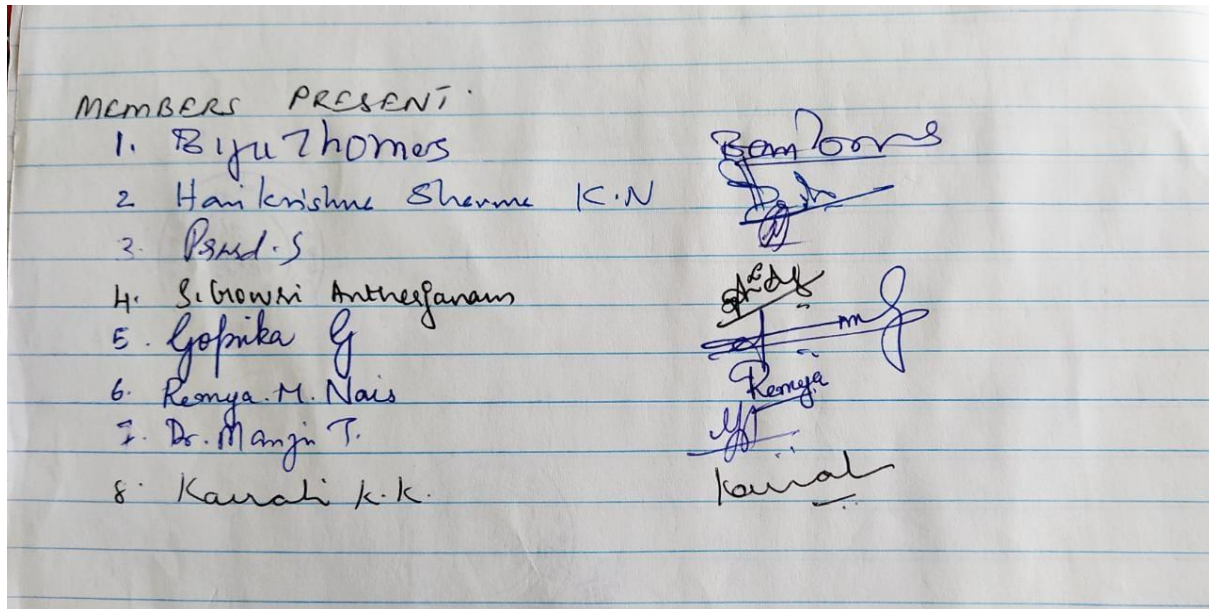 MEMBERS PRESENT.
1. Biju Thomas
2 Harikrishna Sharma K.N
3. Prasad.S
4. S. Gowri Antherjanam
5. Gopika G
6. Remya.M.Nair Remya
7. Dr. Manju T.
8. Kairali K.K. Kairali